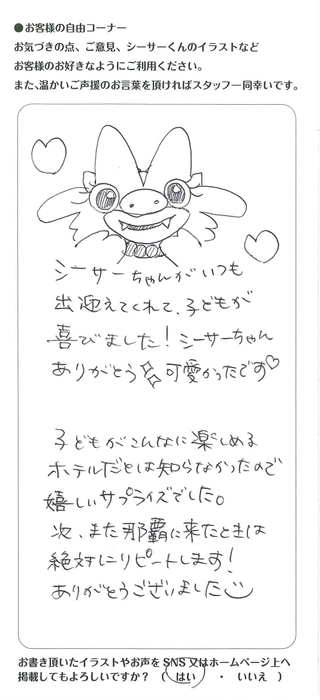 ●お客様の自由コーナー
お気づきの点、ご意見、シーサーくんのイラストなど
お客様のお好きなようにご利用ください。
また、温かいご声援のお言葉を頂ければスタッフ一同幸いです。
シーサーちゃんがいつも
出迎えてくれて、子どもが
喜びました！シーサーちゃん
ありがとう 可愛かったです♡
子どもがこんなに楽しめる
ホテルだとは知らなかったので
嬉しいサプライズでした。
次、また那覇に来たときは
絶対にリピートします！
ありがとうございました
お書き頂いたイラストやお声を SNS 又はホームページ上へ
掲載してもよろしいですか？ （ はい ・ いいえ ）